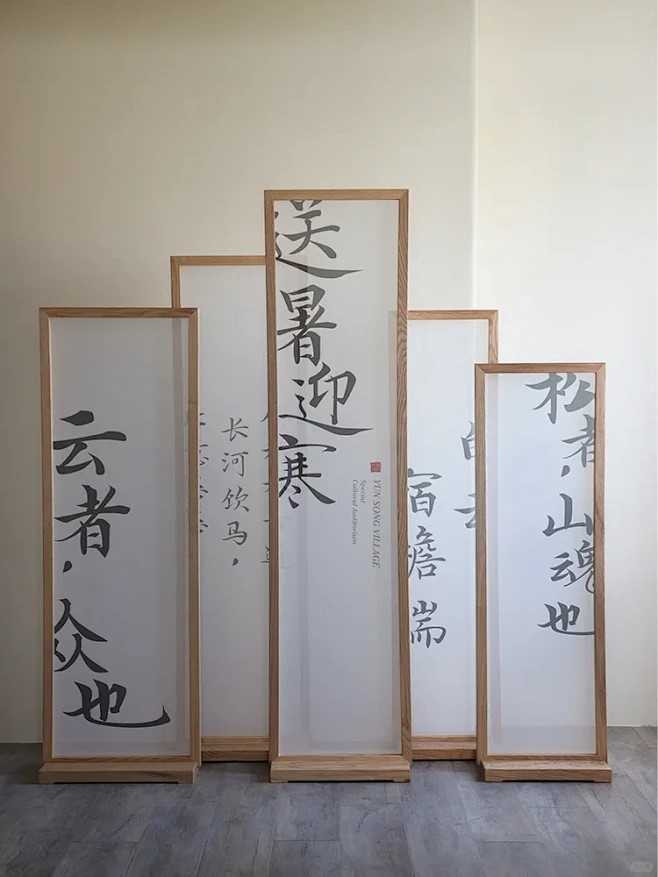 云者，众也
长河饮马，
送暑迎寒
YUN SONG VILLAGE
Special
Cultural Auditorium
白云
宿檐端
松者，山魂也